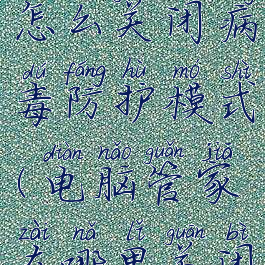 怎么关闭病
dú fáng hù mó shì
毒防护模式
diàn nǎo guǎn jiā
(电脑管家
zài nǎ lǐ guān bì
在哪里关闭